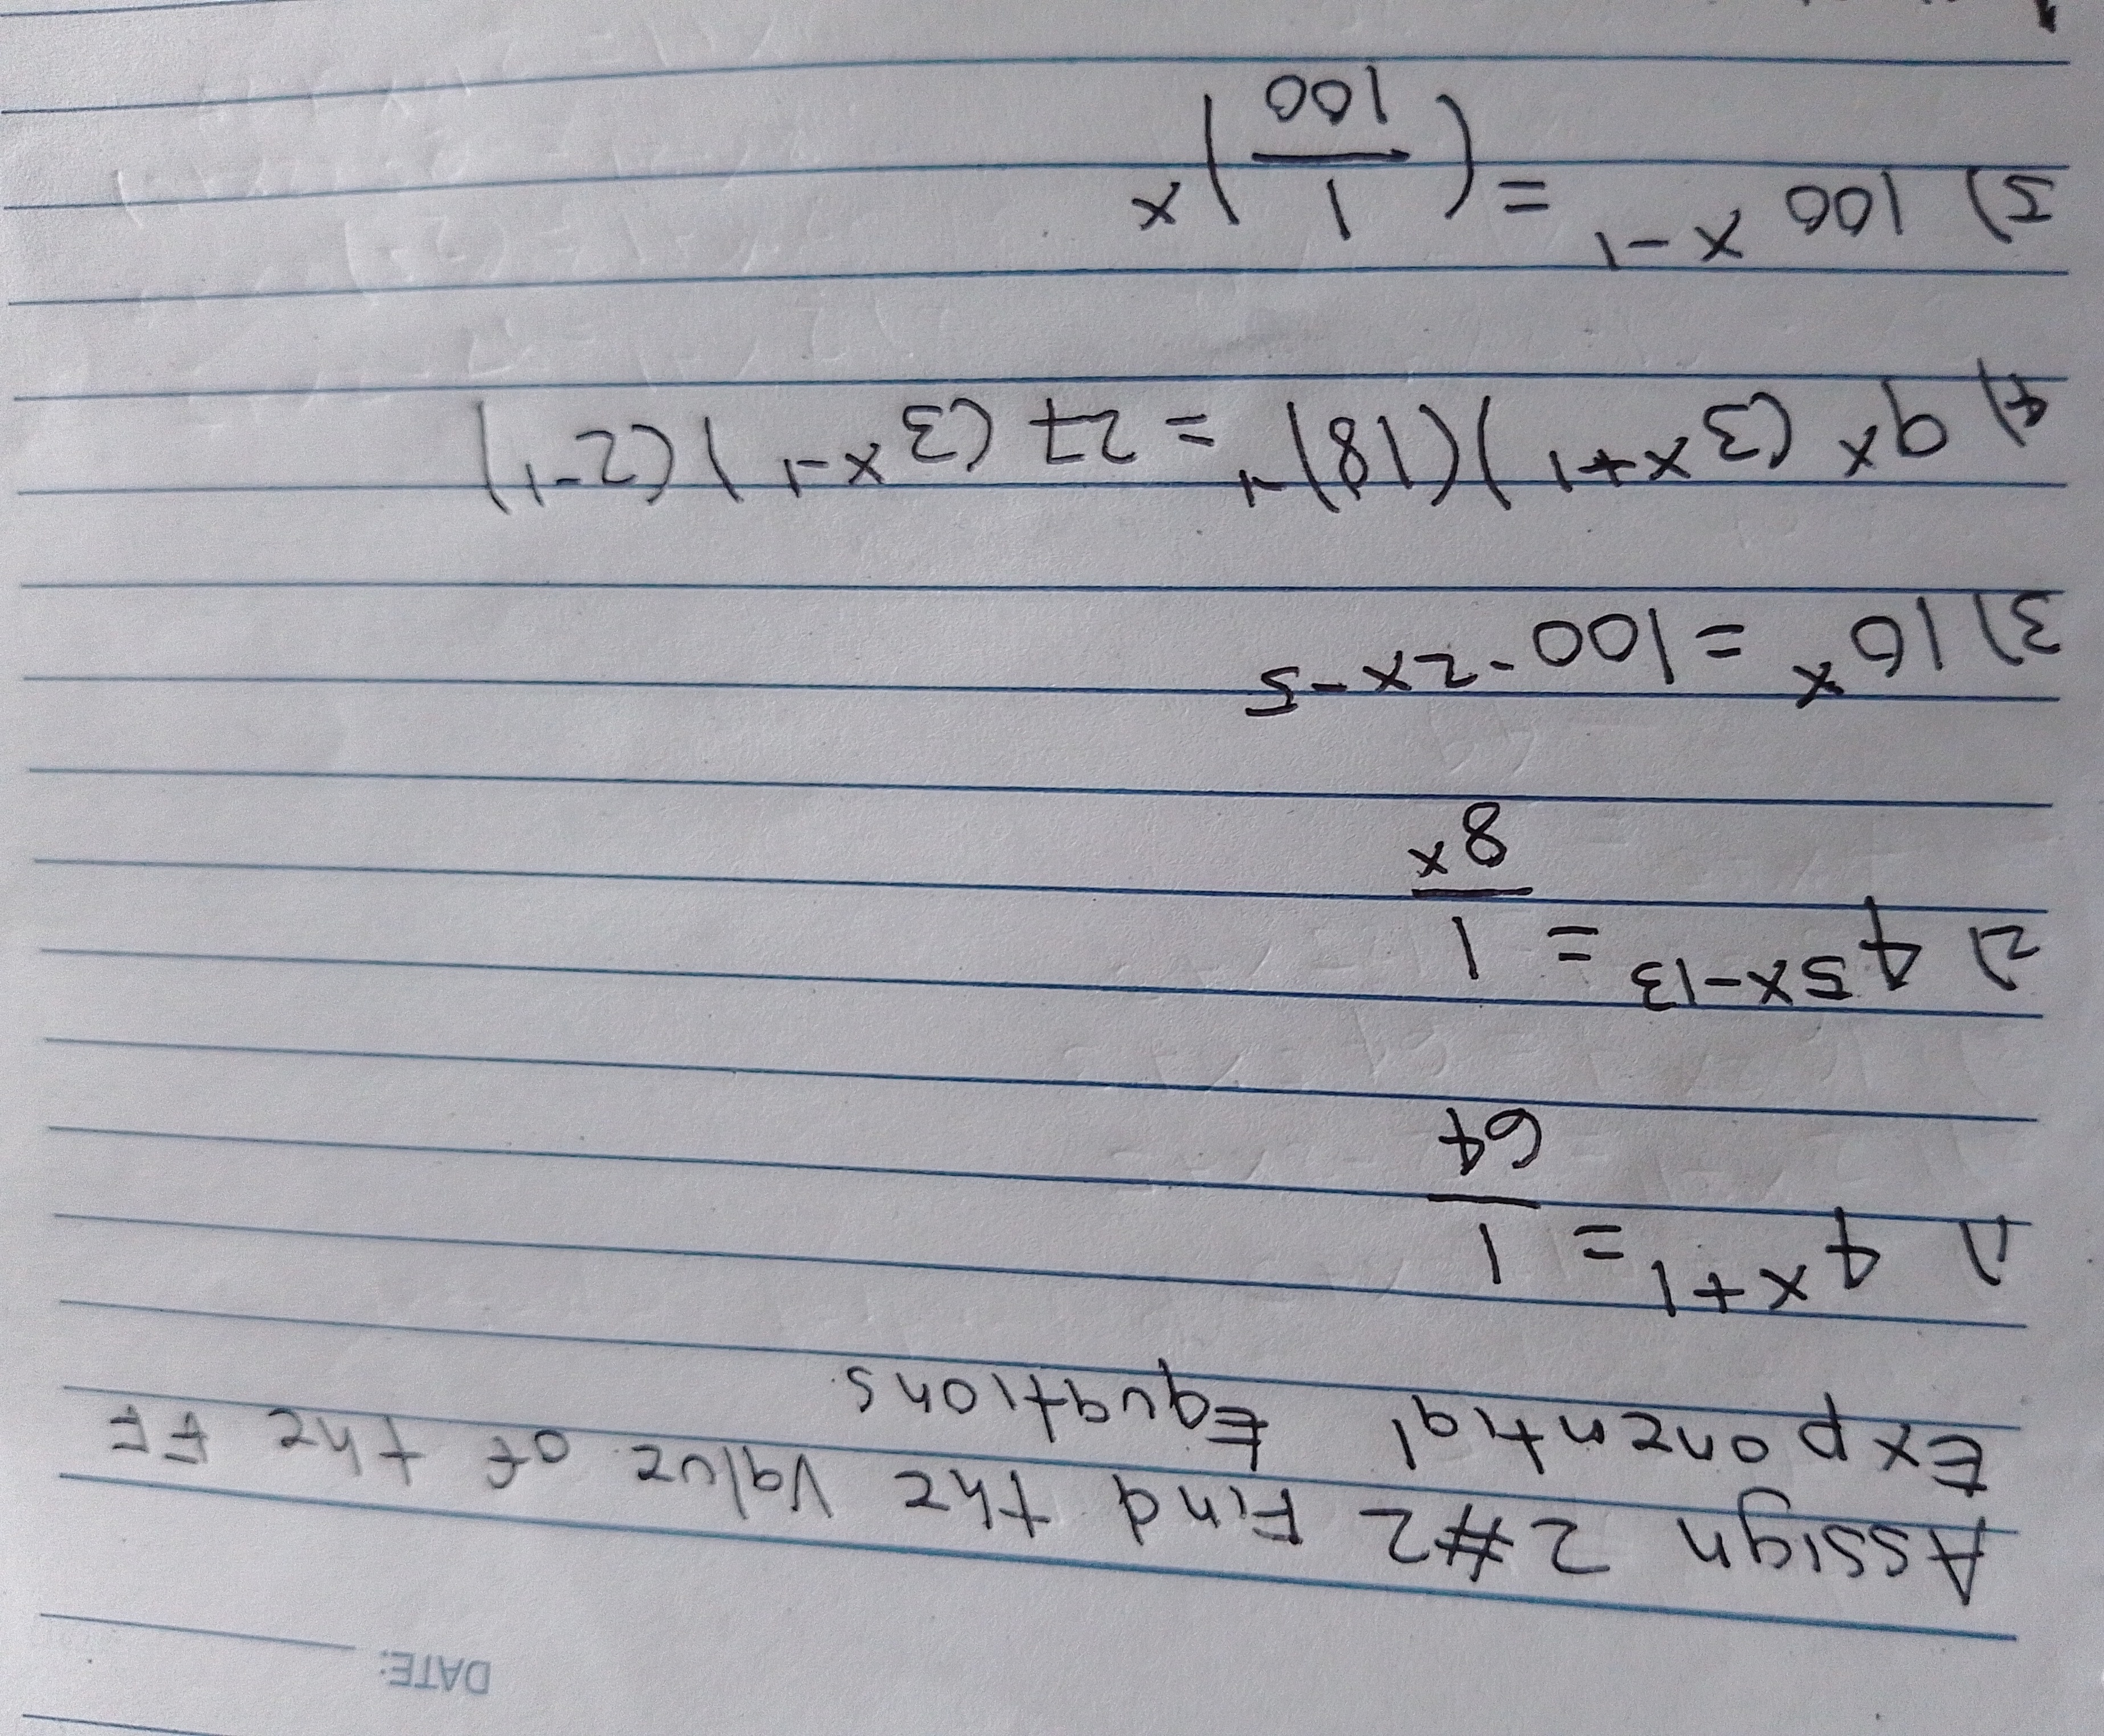 DATE:
Assign 2 #2 Find the value of the FF
Exponential Equations
1) 4^x+1 = 1/64
2) 4^5x-13 = 1/8^x
3) 10^x = 100^-2x-5
4) 9^x (3^x+1)(18)^-1 = 27 (3^x-1)(2^-1)
5) 100^x-1 = (1/100)^x